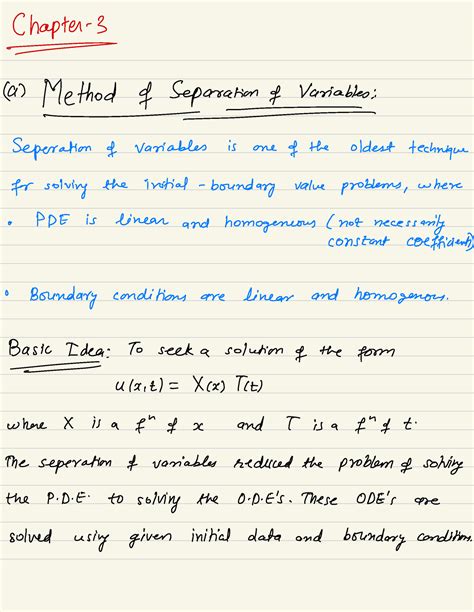 Chapter-3
(a) Method of Separation of Variables:
Seperation of variables is one of the oldest technique
for solving the initial - boundary value problems, where
• PDE is linear and homogeneous (not necessarily
constant coefficient).
• Boundary conditions are linear and homogenous.
Basic Idea: To seek a solution of the form
u(x,t) = X(x) T(t)
where X is a fⁿ of x and T is a fⁿ of t.
The seperation of variables reduced the problem of solving
the P.D.E. to solving the O.D.E's. These ODE's are
solved using given initial data and boundary condition.